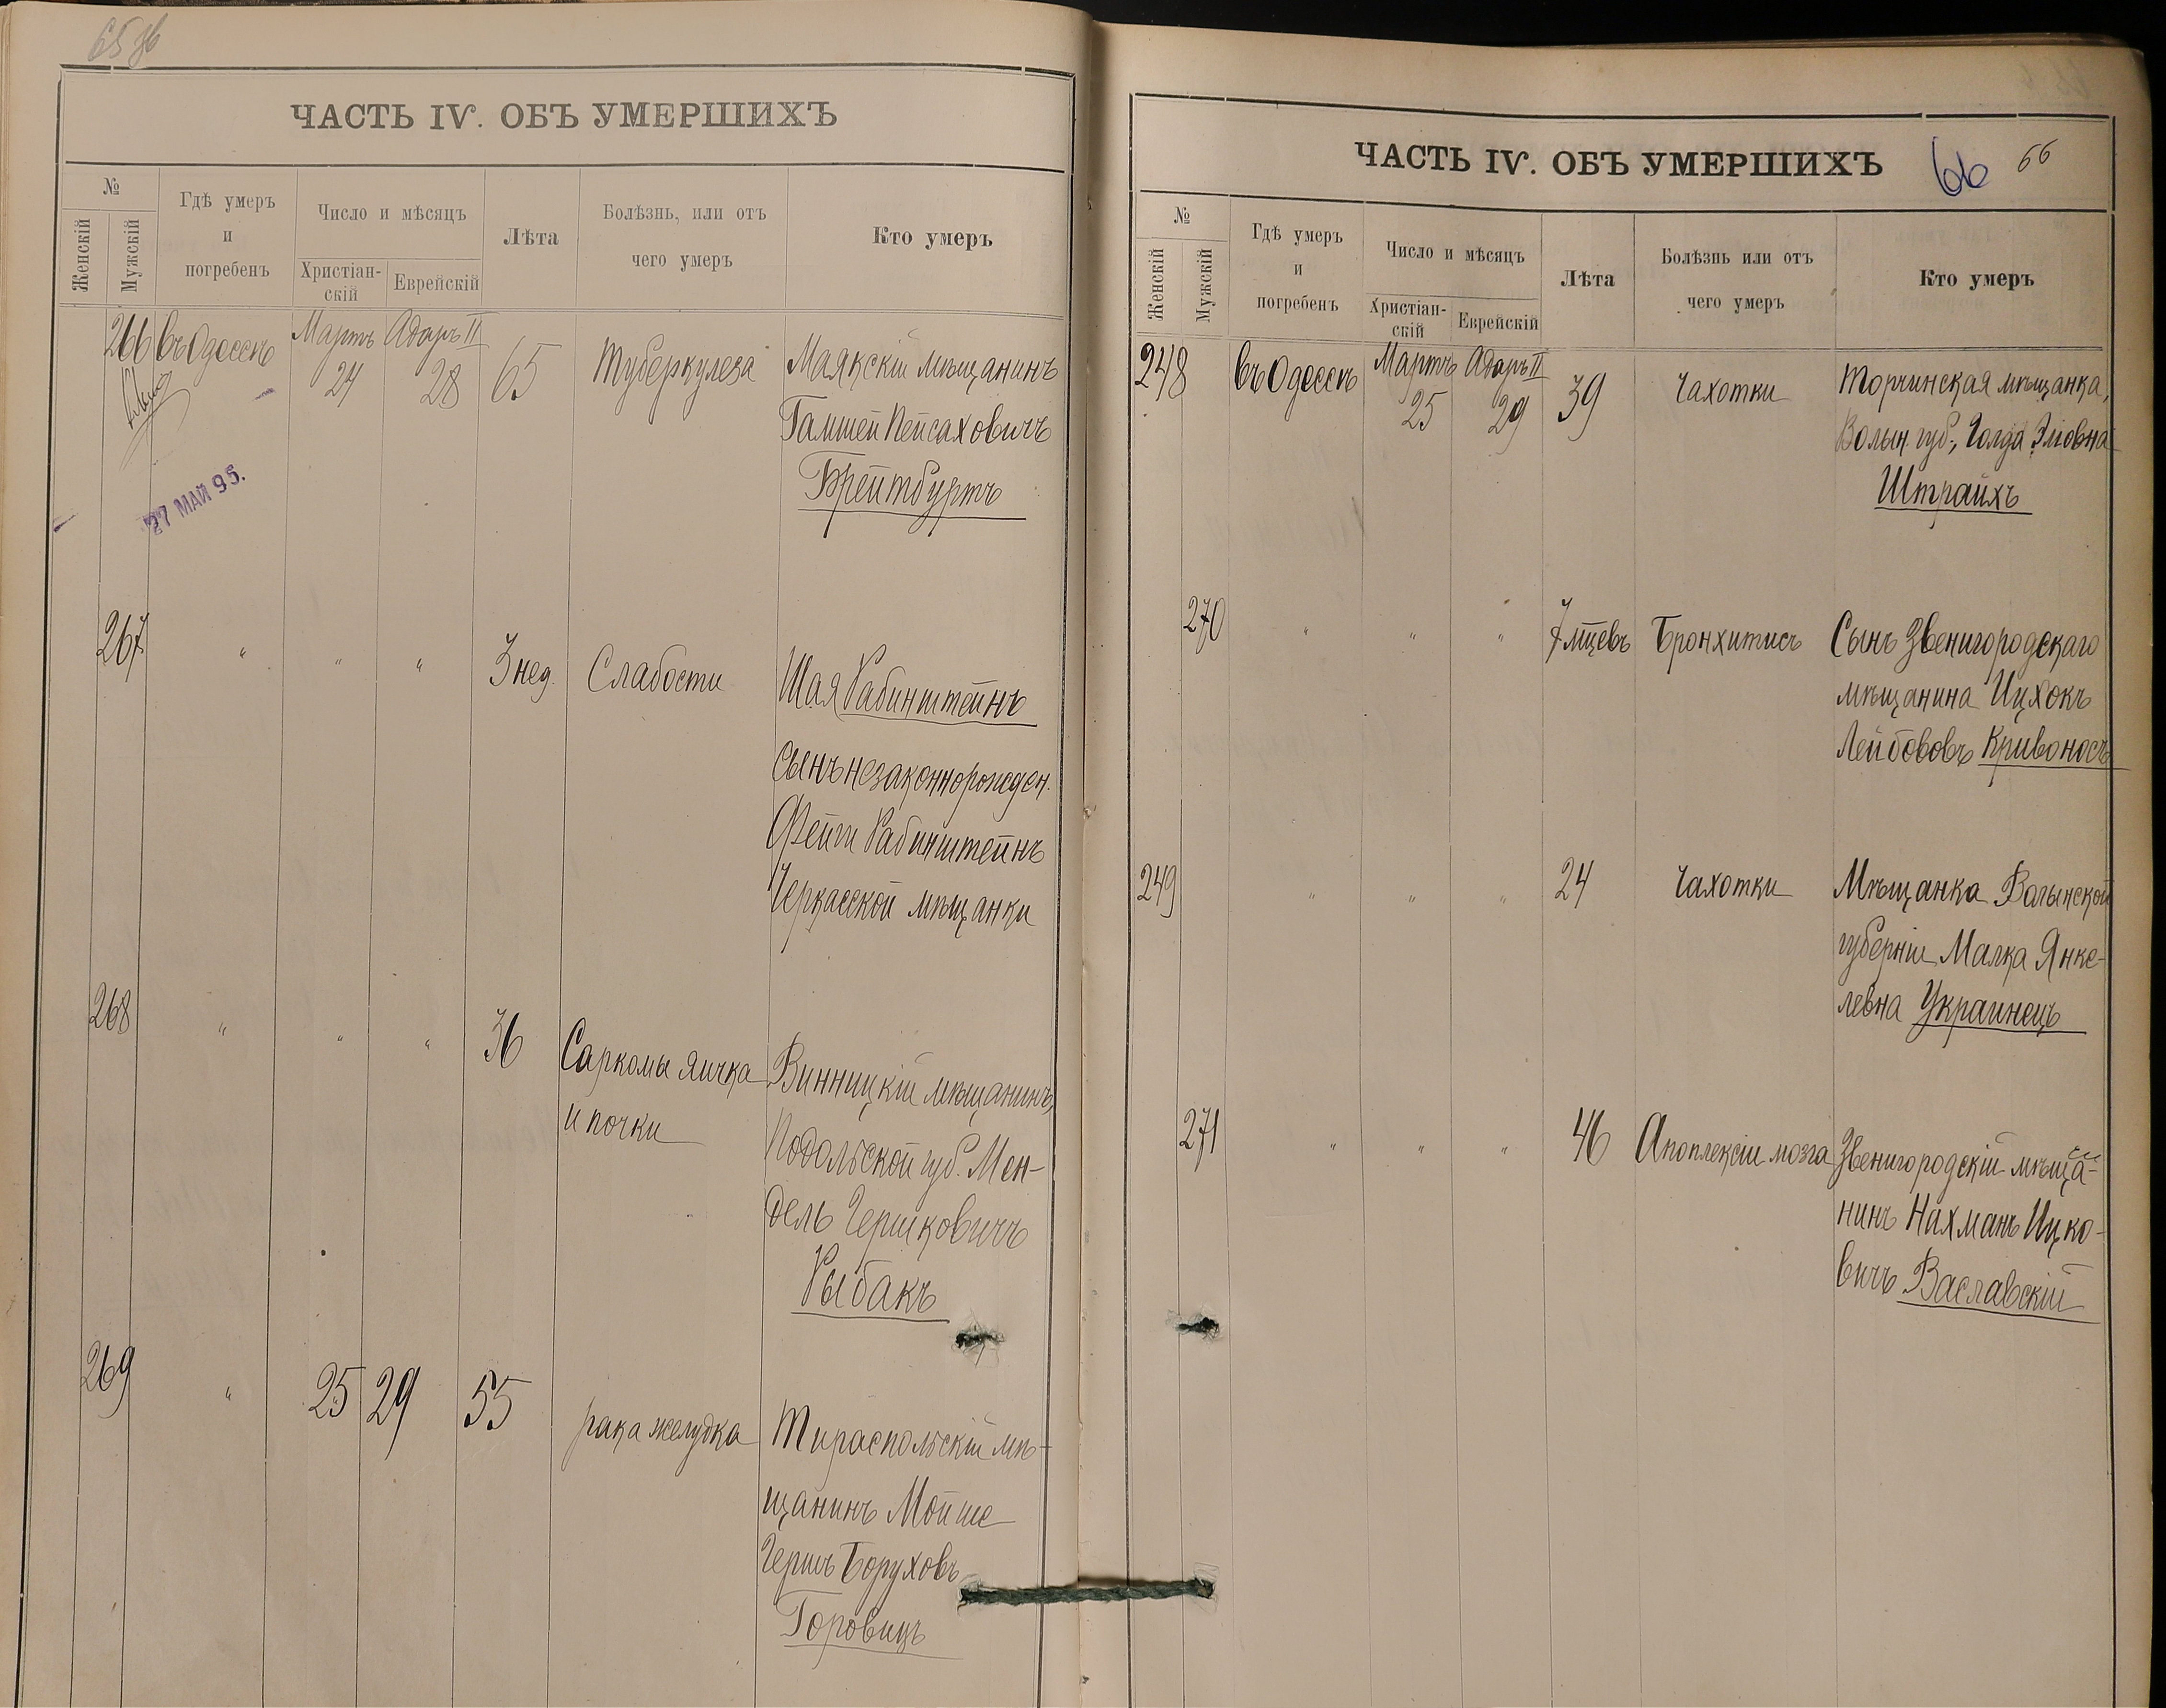 65 об
ЧАСТЬ IV. ОБЪ УМЕРШИХЪ
№
Женскій
Мужскій
Гдѣ умеръ
и
погребенъ
Число и мѣсяцъ
Христіан-
скій
Еврейскій
Лѣта
Болѣзнь, или отъ
чего умеръ
Кто умеръ
266 въ Одессѣ Мартъ 24 Адаръ II 28 65 Туберкулеза Маякскій мѣщанинъ
Гамшей Пейсаховичъ
Брейтбуртъ
27 МАЙ 95.
267 " " " 3 нед. Слабости Шая Рабинштейнъ
сынъ незаконнорожден.
Фейги Рабинштейнъ
Черкасской мѣщанки
268 " " " 36 Саркомы яичка Винницкій мѣщанинъ,
и почки Подольской губ. Мен-
дель Гершковичъ
Рыбакъ
269 " 25 29 55 рака желудка Тираспольскій мѣ-
щанинъ Мойше
Гершъ Боруховъ
Горовицъ
ЧАСТЬ IV. ОБЪ УМЕРШИХЪ
66 66
№
Женскій
Мужскій
Гдѣ умеръ
и
погребенъ
Число и мѣсяцъ
Христіан-
скій
Еврейскій
Лѣта
Болѣзнь или отъ
чего умеръ
Кто умеръ
248 въ Одессѣ Мартъ 25 Адаръ II 29 39 Чахотки Торчинская мѣщанка,
Волын. губ., Голда Эліовна
Штрайхъ
270 " " " 7 мѣцевъ Бронхитисъ Сынъ Звенигородскаго
мѣщанина Ицхокъ
Лейбововъ Кривоносъ
249 " " " 24 Чахотки Мѣщанка Волынской
губерніи Малка Янке-
левна Украинецъ
271 " " " 46 Апоплексіи мозга Звенигородскій мѣща-
нинъ Нахманъ Ицко-
вичъ Ваславскій